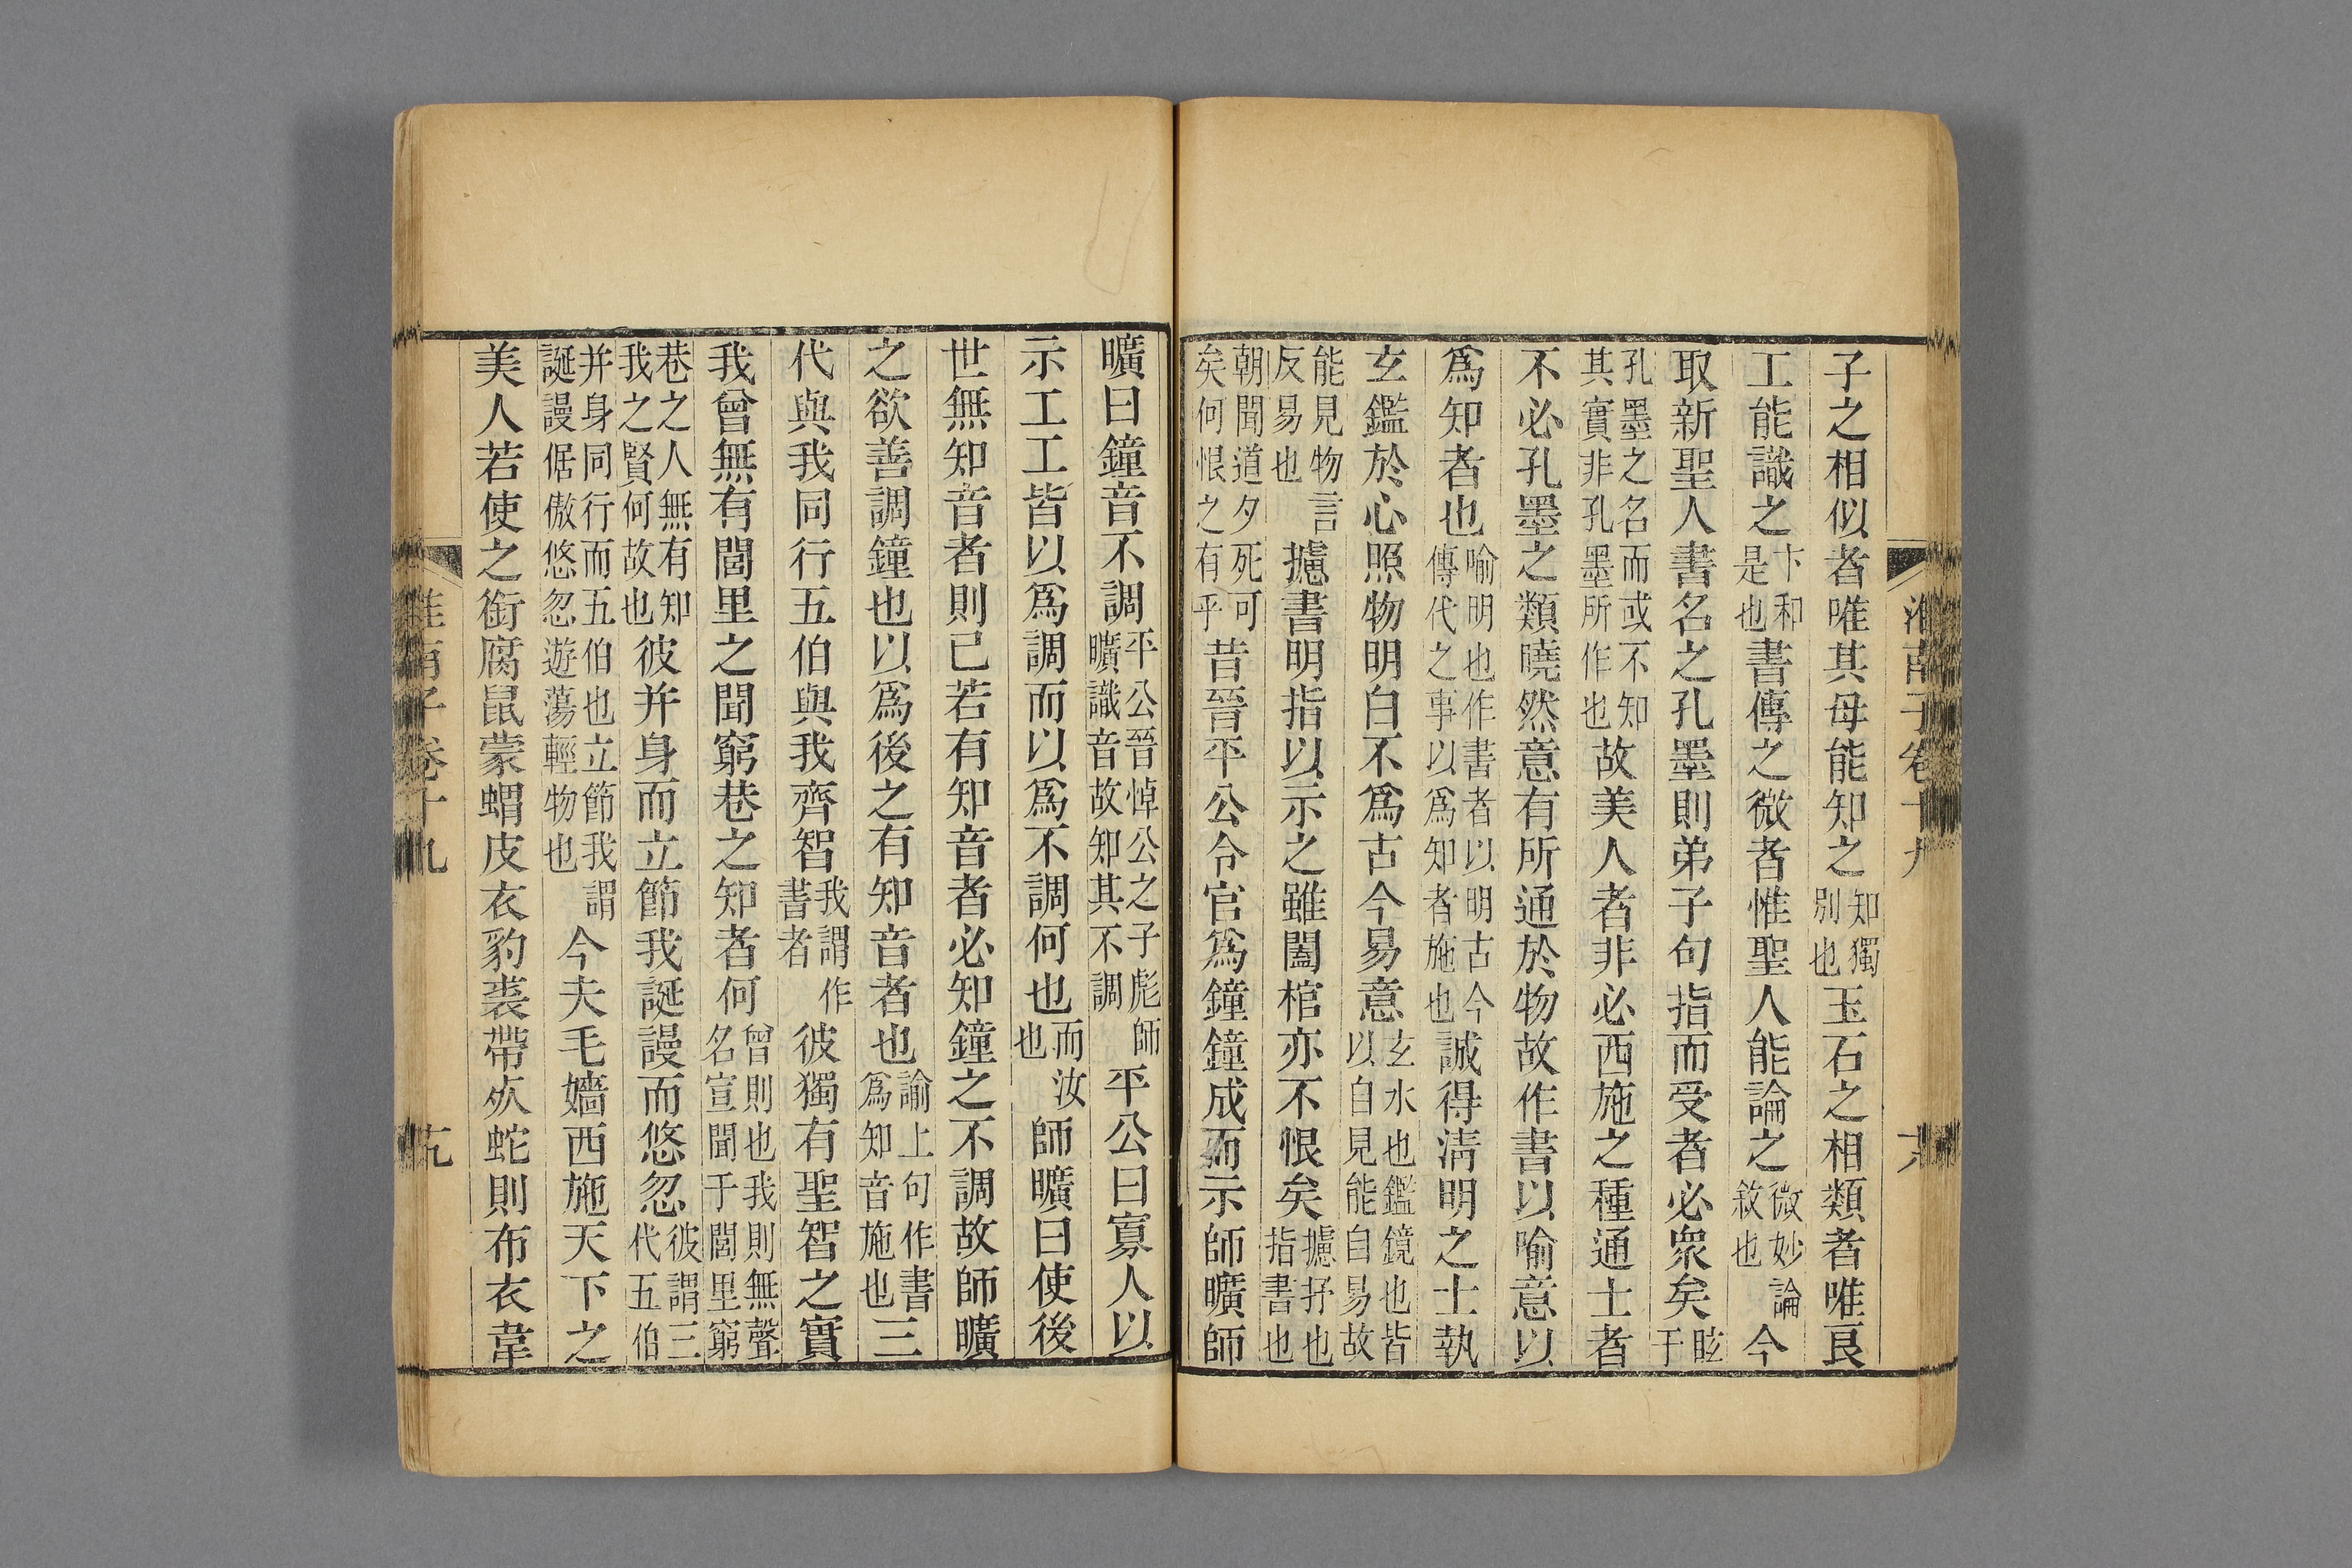 子之相似者唯其母能知之知獨別也玉石之相類者唯良
工能識之卞和是也書傳之微者惟聖人能論之微妙論敘也今
取新聖人書名之孔墨則弟子句指而受者必衆矣眩于
孔墨之名而或不知其實非孔墨所作也故美人者非必西施之種通士者
不必孔墨之類曉然意有所通於物故作書以喻意以
爲知者也喻明也作書者以明古今傳代之事以爲知者施也誠得淸明之士執
玄鑑於心照物明白不爲古今易意玄水也鑑鏡也皆以自見能自易故
能見物言反易也攄書明指以示之雖闔棺亦不恨矣攄抒也指書也
朝聞道夕死可矣何恨之有乎昔晉平公令官爲鐘鐘成而示師曠師
淮南子卷十九
曠曰鐘音不調平公晉悼公之子彪師曠識音故知其不調平公曰寡人以
示工工皆以爲調而以爲不調何也而汝也師曠曰使後
世無知音者則已若有知音者必知鐘之不調故師曠
之欲善調鐘也以爲後之有知音者也諭上句作書爲知音施也三
代與我同行五伯與我齊智我謂作書者彼獨有聖智之實
我曾無有閭里之聞窮巷之知者何曾則也我則無聲名宣聞于閭里窮
巷之人無有知我之賢何故也彼并身而立節我誕謾而悠忽彼謂三代五伯
并身同行而五伯也立節我謂誕謾倨傲悠忽遊蕩輕物也今夫毛嬙西施天下之
美人若使之銜腐鼠蒙蝟皮衣豹裘帶㱙蛇則布衣韋
淮南子卷十九